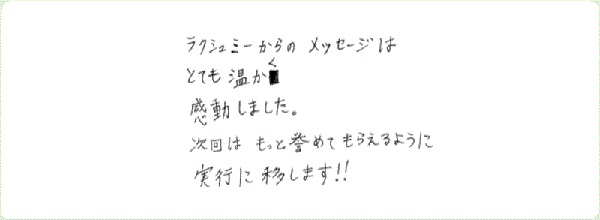 ラクシュミーからの メッセージは
とても 温かく
感動しました。
次回は もっと誉めてもらえるように
実行に移します!!